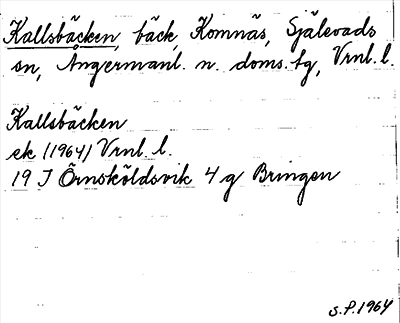 Kallsbäcken, bäck, Komnäs, Själevads
sn, Ångermanl. n. doms. tg, Vrnl. l.
Kallsbäcken
ek (1964) Vrnl. l.
19 J Örnsköldsvik 4 g Bringen
S.P. 1964